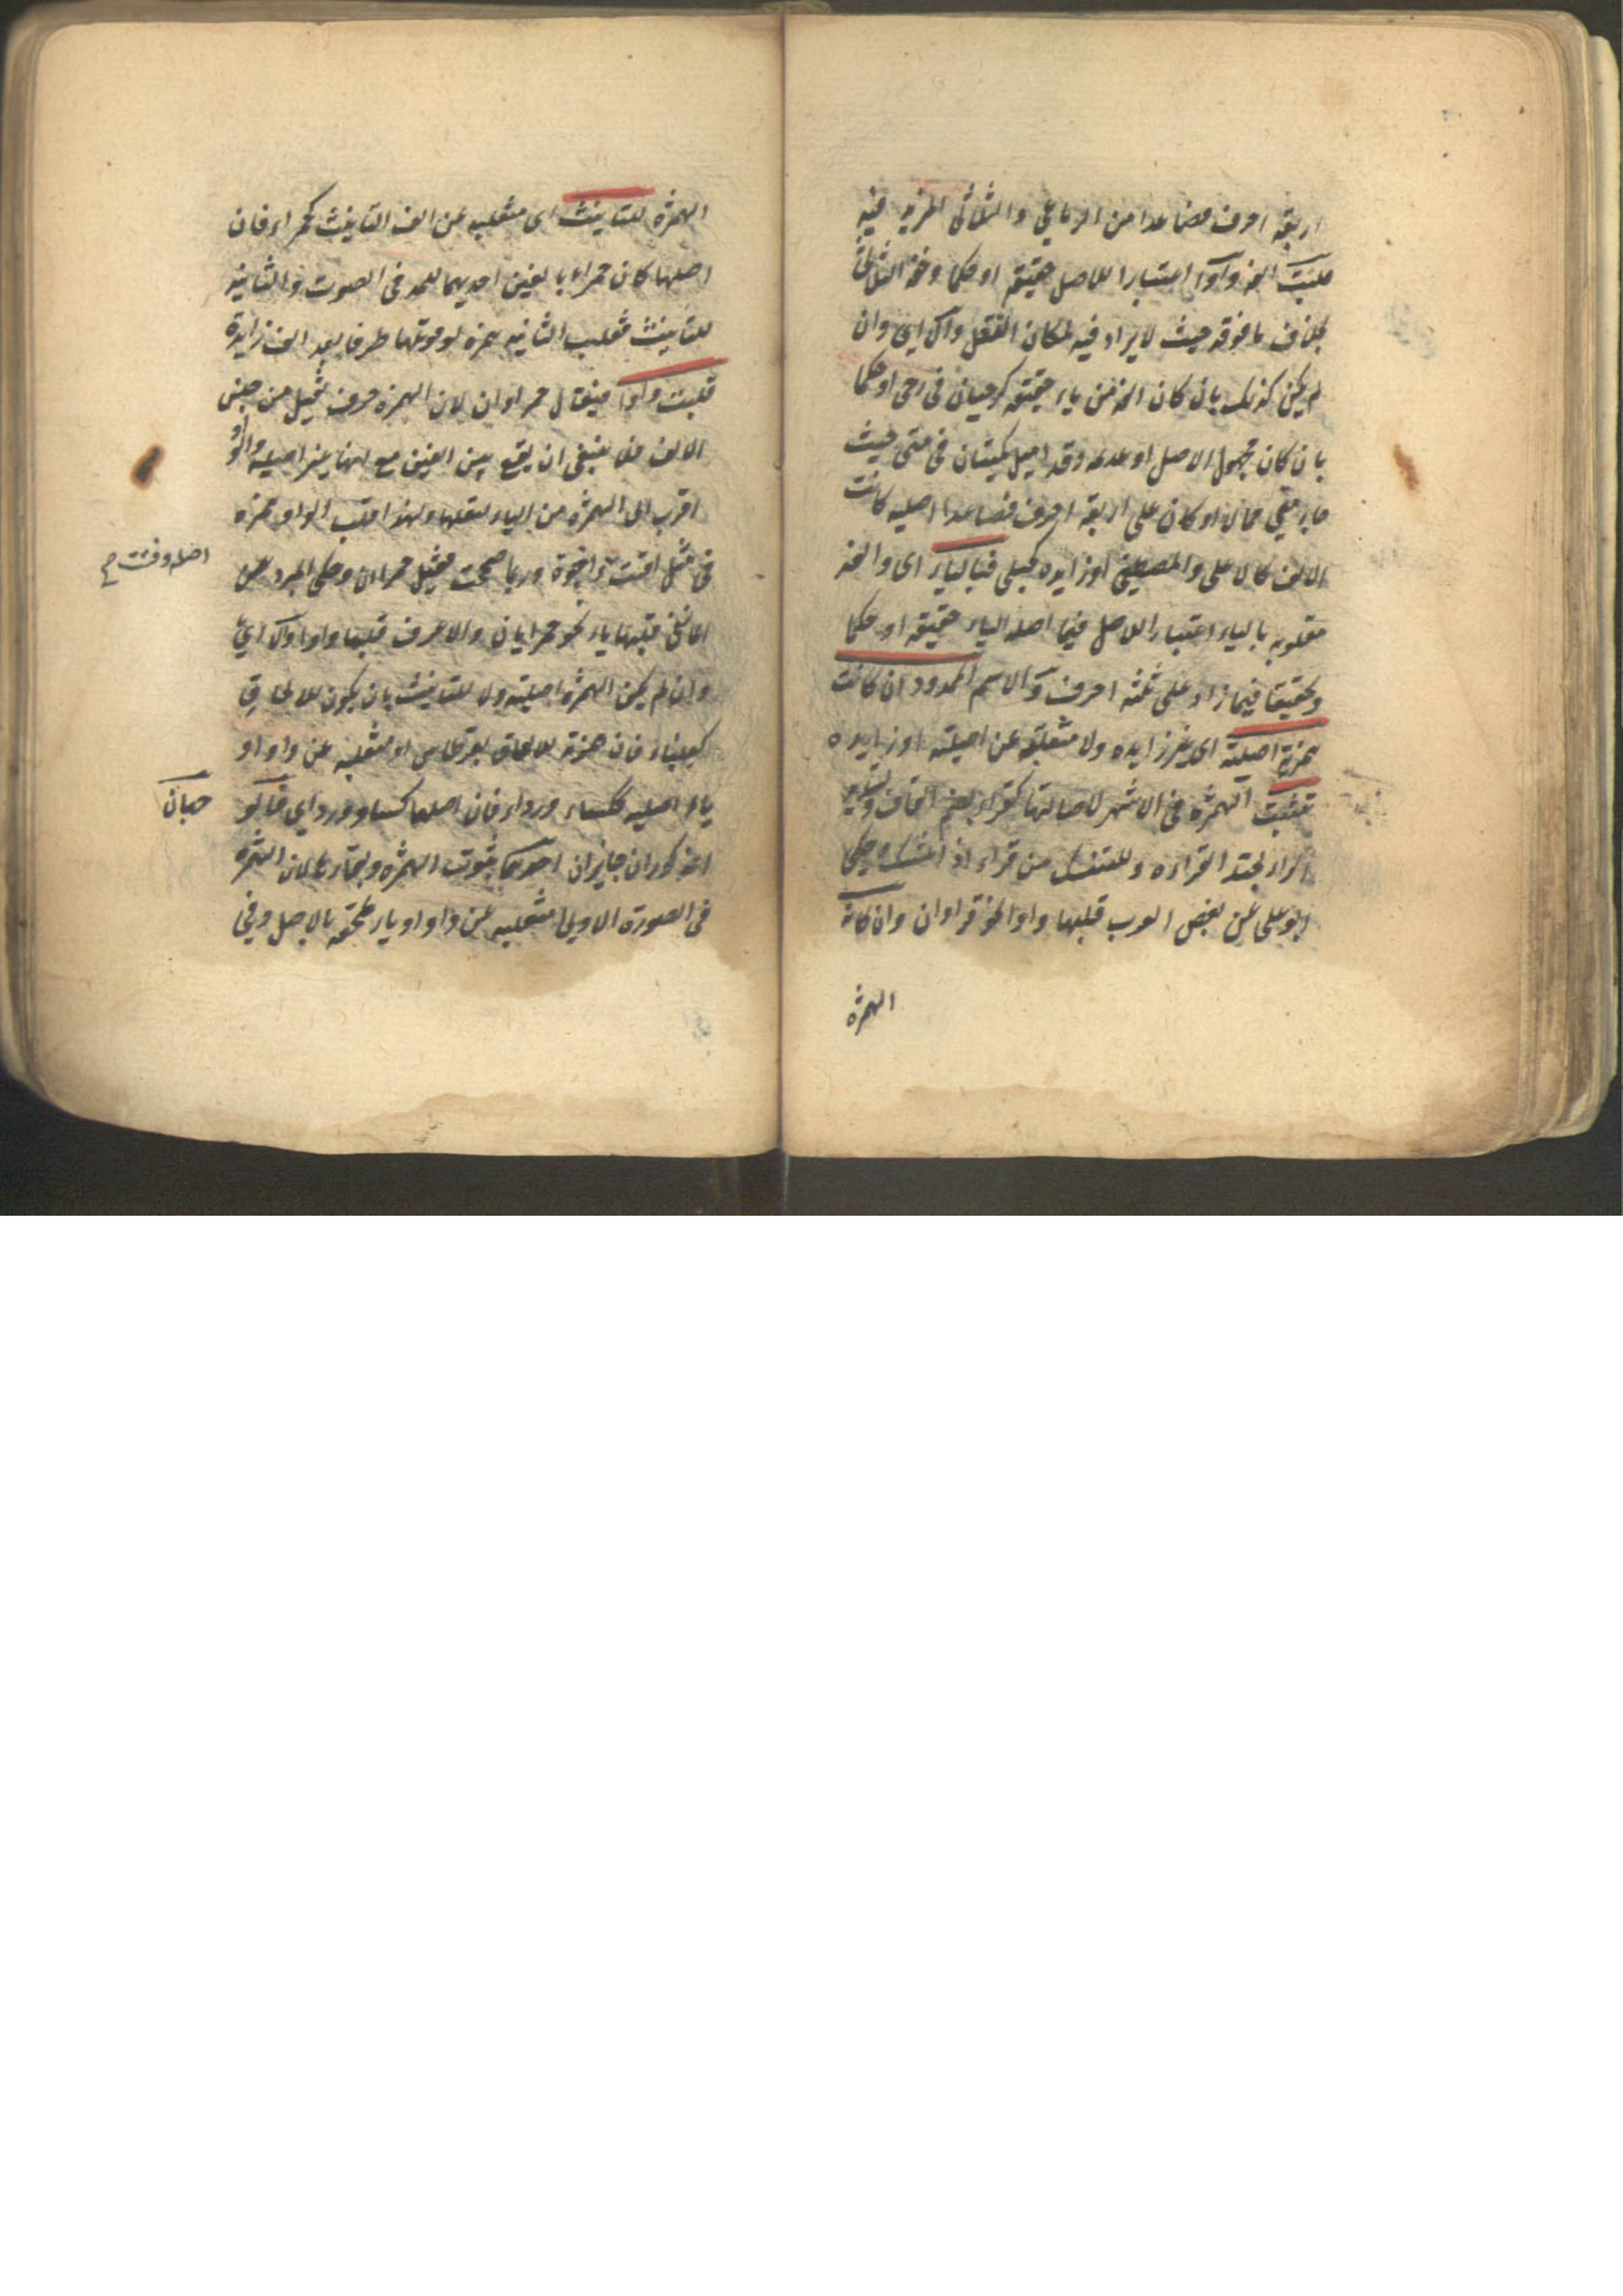 اربعة احرف فصاعدا من الرباعي والثلاثي المزيد فيه
قلبت الفه واوا اعتبارا للاصل حقيقة او حكما وخفة الثلاثي
بخلاف ما فوقه حيث لا يزاد فيه لمكان الثقل والا اي وان
لم يكن كذلك بان كان الفه من ياء حقيقة كرحيان في رحى او حكما
بان كان مجهول الاصل او عدمه وقد اميل كمتيان في متى حيث
جاء متى ممالا او كان على اربعة احرف فصاعدا اصلية كانت
الالف كالاعلى والمصطفى او زايدة كحبلى فبالياء اى والفه
مقلوبه بالياء اعتبارا للاصل فيما اصله الياء حقيقة او حكما
وتخفيفا فيما زاد على ثلثه احرف والاسم الممدود ان كانت
همزته اصلية اى غير زايده ولا منقلبة عن اصلية او زايده
تثبت الهمزة في الاشهر لاصالتها كقراء بضم القاف وتشديد
الراء لجيد القراءه وللمتنسك من قراء اذا تنسك وحكى
ابو على عن بعض العرب قلبها واوا نحو قراوان وان كانت
الهمزة
الهمزة للتانيث اى منقلبه عن الف التانيث كحمراء فان
اصلها كان حمراء بالفين احديهما للمد في الصوت والثانية
للتانيث فقلبت الثانيه همزه لوقوعها طرفا بعد الف زايدة
قلبت واوا فيقال حمراوان لان الهمزه حرف ثقيل من جنس
الالف فلا ينبغى ان يقع بين الفين مع انها غير اصلية والواو
اقرب الى الهمزة من الياء لثقلها ولهذا قلبت الواو همزه
في مثل اقتت واجوه وربما صححت فقيل حمراان وحكى المبرد عن
المازنى قلبها ياء نحو حمرايان والاعرف قلبها واوا والا اي
وان لم يكن الهمزة اصلية ولا للتانيث بان يكون للالحاق
كعلباء فان همزته للالحاق بقرطاس او منقلبه عن واو او
ياء اصليه ككساء ورداء فان اصلهما كساو ورداي فالو
المذكوران جايزان احدهما ثبوت الهمزة وبقاؤها لان الهمزة
في الصورة الاولى منقلبه عن واو او ياء ملحقة بالاصل وفي
اصله وقتت
جهان